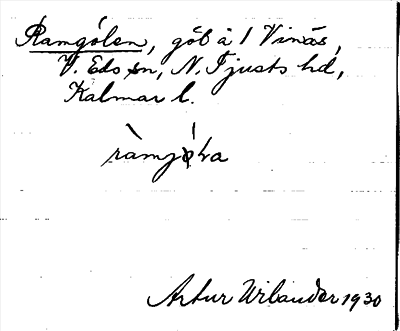 Ramgölen, göl å 1 Vinäs,
V. Eds sn, N. Tjusts hd,
Kalmar l.
Artur Wilander 1930